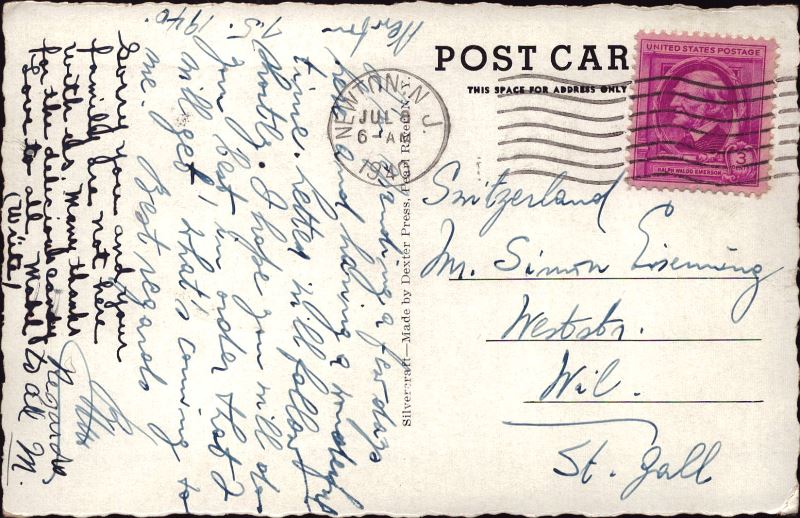 POST CAR
THIS SPACE FOR ADDRESS ONLY
UNITED STATES POSTAGE
3
RALPH WALDO EMERSON
NEWTON, N.J.
JUL 8
6 - AM
1940
Switzerland
Mr. Simon Eisenring
Weststr.
Wil.
St. Gall
Silvercraft—Made by Dexter Press, Pearl River, N.Y.
Newton
7.5. 1940.
Spending a few days
here and having a wonderful
time. Letter will follow
shortly. I hope you will do
your best in order that I
will get, what's coming to
me. Best regards
Sorry you and your
family are not here
with us. Many thanks
for the delicious candy
Love to all Mabel
(Write)
Regards
to all M.